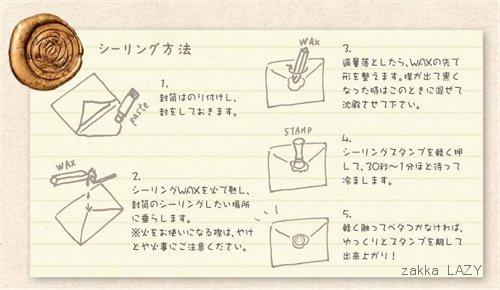 シーリング方法
1.
封筒はのり付けし、
封をしておきます。
paste
WAX
2.
シーリングWAXを火で熱し、
封筒のシーリングしたい場所
に垂らします。
※火をお使いになる際は、やけ
どや火事にご注意ください。
WAX
3.
適量落としたら、WAXの先で
形を整えます。煤が出て黒く
なった時はこのときに混ぜて
沈殿させて下さい。
STAMP
4.
シーリングスタンプを軽く押
して、30秒～1分ほど待って
冷まします。
5.
軽く触ってベタつかなければ、
ゆっくりとスタンプを離して
出来上がり!
zakka LAZY